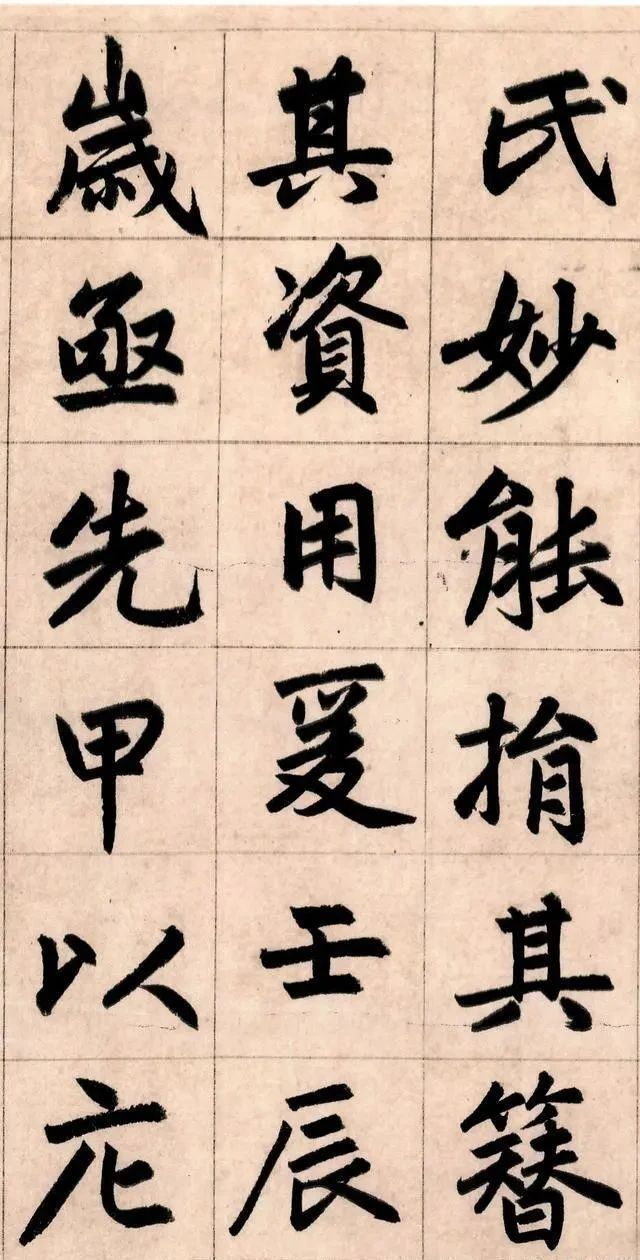 氏妙能捐其簪
其資用爰壬辰
歲亟先甲以庀